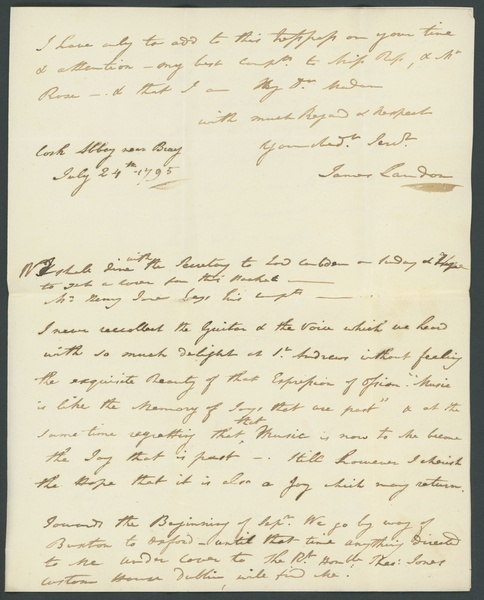 I have only to add to this trespass on your time
& attention – my best compts. to Miss Rose, & Mr
Rose – & that I am My Dr. Madam
with much Regard & Respect
Your obedt. Servt.
Cork Abbey near Bray
July 24th 1795
James Landon
I shall dine with the Secretary to Lord Camden on Sunday & Hope
to get a cover for this Packet –
Mr Henry begs his compts –
I never recollect the Guitar & the Voice which we heard
with so much delight at St. Andrews without feeling
the exquisite Beauty of that Expression of Ossian "Music
is like the Memory of Joys that are past" & at the
same time regretting that that Music is now to Me become
the Joy that is past –. Still however I cherish
the Hope that it is also a Joy which may return.
Towards the Beginning of Sepr. We go by way of
Buxton to Oxford – until that time anything directed
to Me under cover to the Rt. Honble Theos: Jones
Custom House Dublin, will find Me.